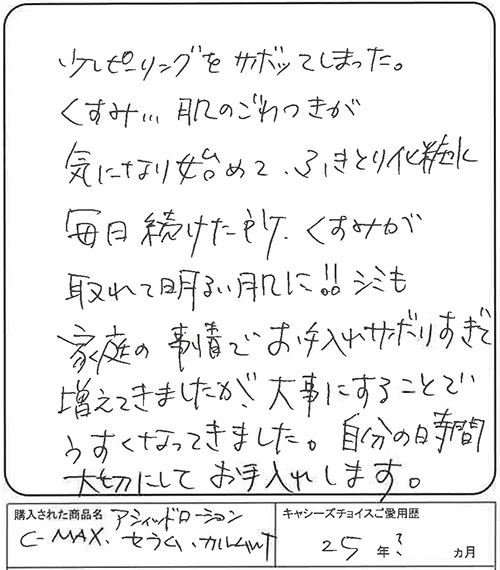 少しピーリングをサボッてしまった。
くすみ... 肌のごわつきが
気になり始めて、ふきとり化粧水
毎日続けたら、くすみが
取れて明るい肌に!! シミも
家庭の事情でお手入れサボりすぎて
増えてきましたが、大事にすることで
うすくなってきました。自分の時間
大切にしてお手入れします。
購入された商品名 アシィッドローション
C-MAX、セラム、カルム
キャシーズチョイスご愛用歴
25年? ヵ月